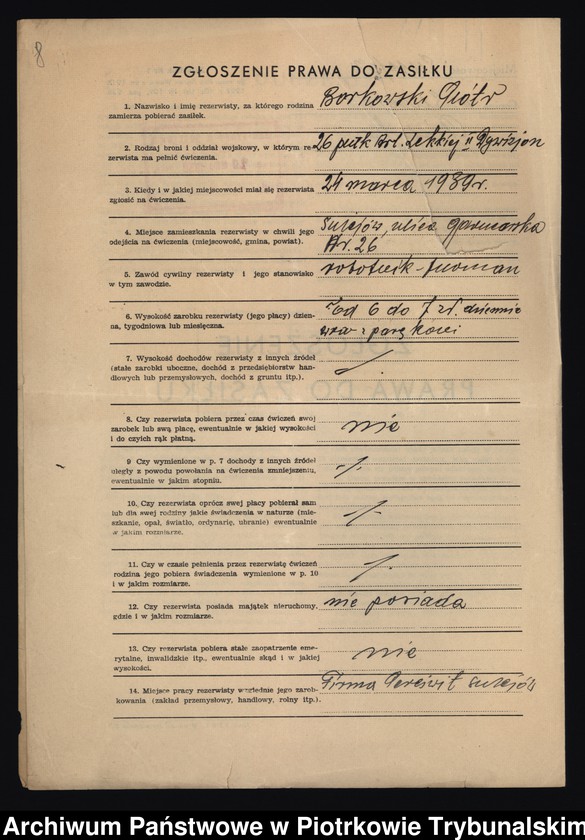 8
ZGŁOSZENIE PRAWA DO ZASIŁKU
1. Nazwisko i imię rezerwisty, za którego rodzina
zamierza pobierać zasiłek.
Borkowski Piotr
2. Rodzaj broni i oddział wojskowy, w którym re-
zerwista ma pełnić ćwiczenia.
26 pułk Art. Lekkiej II Dywizjon
3. Kiedy i w jakiej miejscowości miał się rezerwista
zgłosić na ćwiczenia.
24 marca 1939 r.
4. Miejsce zamieszkania rezerwisty w chwili jego
odejścia na ćwiczenia (miejscowość, gmina, powiat).
Sulejów, ulica Garncarska
Nr. 26
5. Zawód cywilny rezerwisty i jego stanowisko
w tym zawodzie.
robotnik-furman
6. Wysokość zarobku rezerwisty (jego płacy) dzien-
na, tygodniowa lub miesięczna.
Od 6 do 7 zł. dziennie
wraz z parą koni
7. Wysokość dochodów rezerwisty z innych źródeł
(stałe zarobki uboczne, dochód z przedsiębiorstw han-
dlowych lub przemysłowych, dochód z gruntu itp.).
8. Czy rezerwista pobiera przez czas ćwiczeń swój
zarobek lub swą płacę, ewentualnie w jakiej wysokości
i do czyich rąk płatną.
nie
9 Czy wymienione w p. 7 dochody z innych źródeł
uległy z powodu powołania na ćwiczenia zmniejszeniu,
ewentualnie w jakim stopniu.
10. Czy rezerwista oprócz swej płacy pobierał sam
lub dla swej rodziny jakie świadczenia w naturze (mie-
szkanie, opał, światło, ordynarię, ubranie) ewentualnie
w jakim rozmiarze.
11. Czy w czasie pełnienia przez rezerwistę ćwiczeń
rodzina jego pobiera świadczenia wymienione w p. 10
i w jakim rozmiarze.
12. Czy rezerwista posiada majątek nieruchomy,
gdzie i w jakim rozmiarze.
nie posiada
13. Czy rezerwista pobiera stałe zaopatrzenie eme-
rytalne, inwalidzkie itp., ewentualnie skąd i w jakiej
wysokości.
nie
14. Miejsce pracy rezerwisty względnie jego zarob-
kowania (zakład przemysłowy, handlowy, rolny itp.).
Firma Sulejów
Archiwum Państwowe w Piotrkowie Trybunalskim